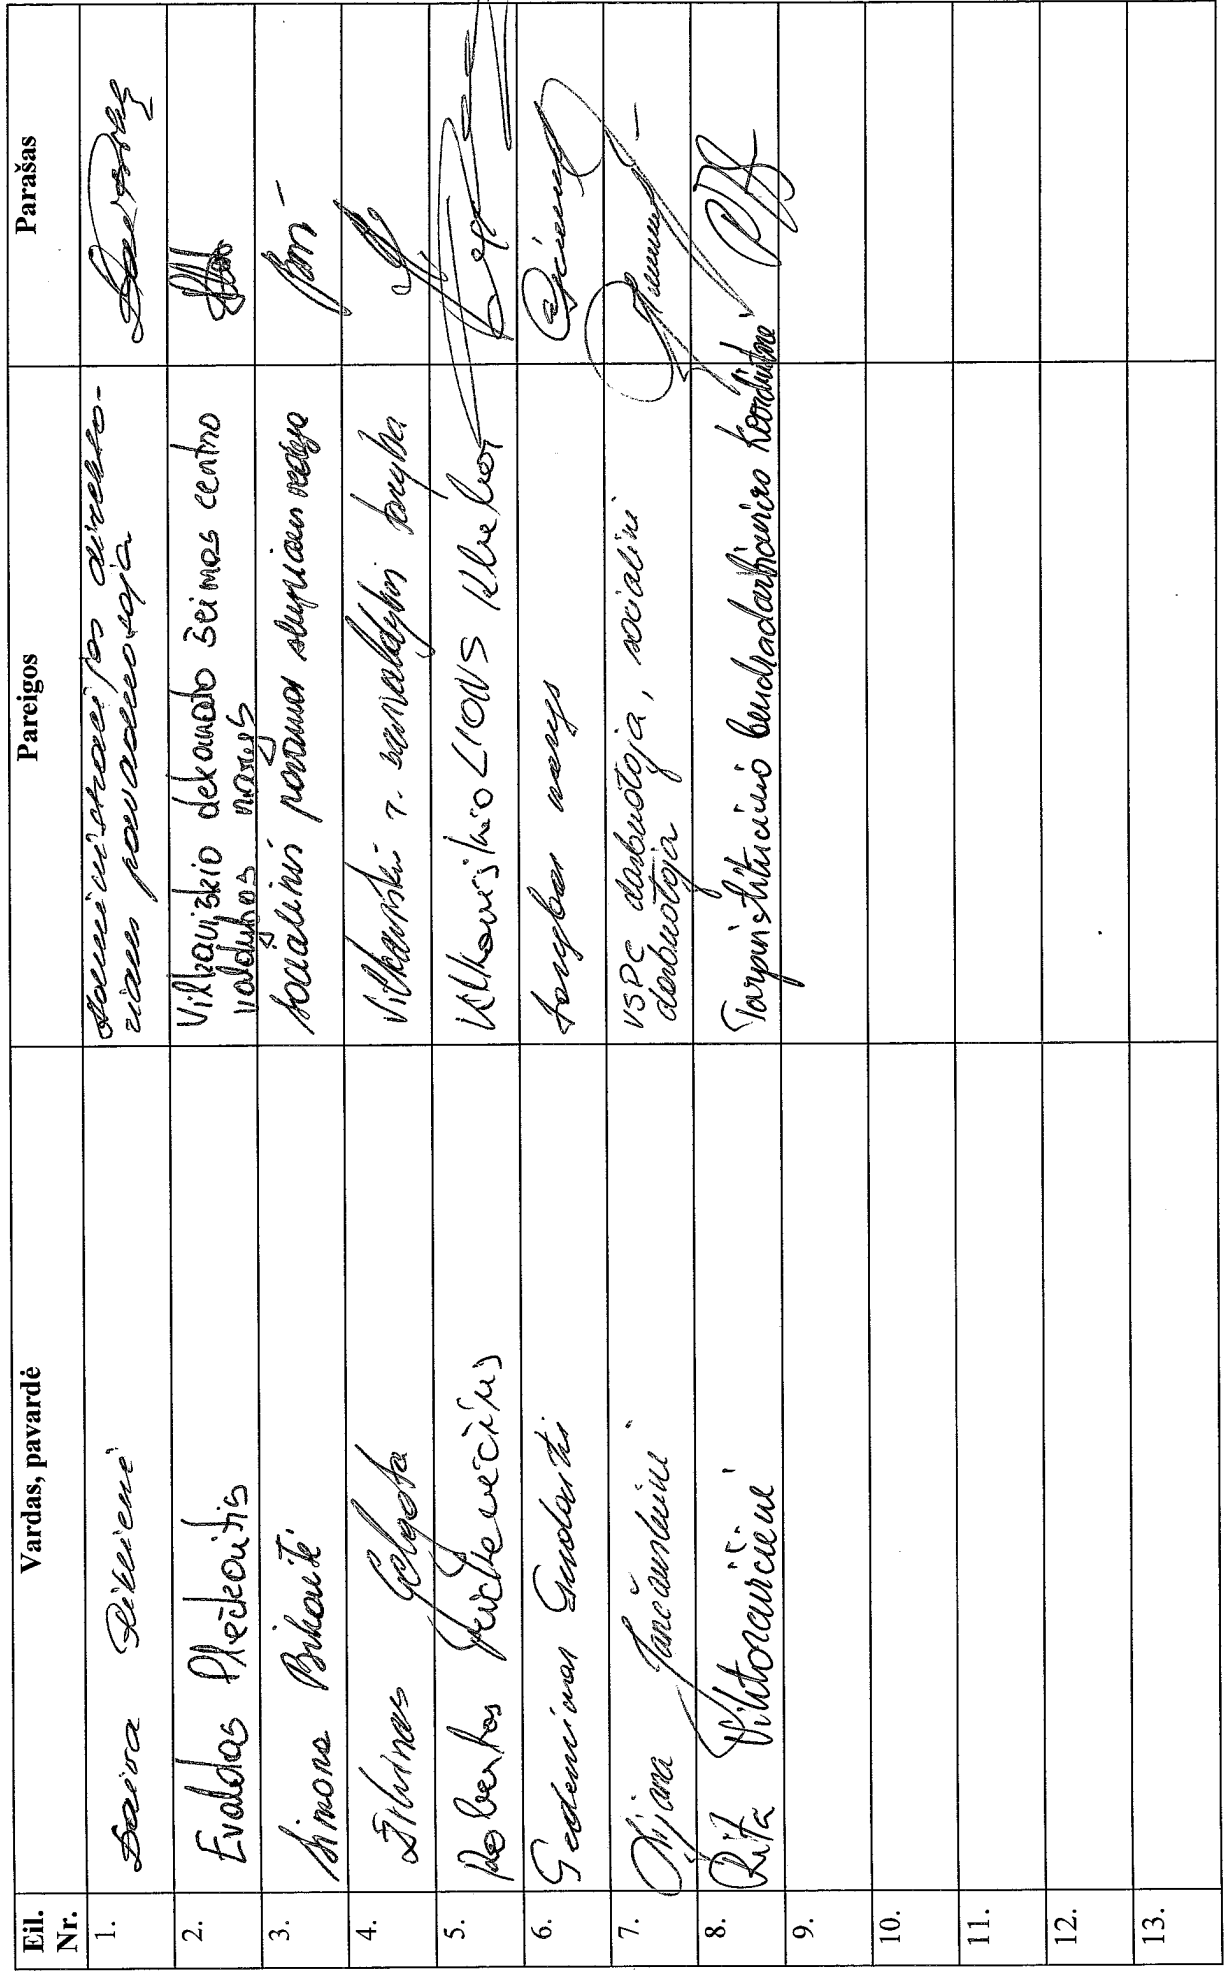 Eil. Nr. Vardas, pavardė Pareigos Parašas
1. Daiva Riklienė Administracijos direkto-
riaus pavaduotoja
2. Evaldas Plečkaitis Vilkaviškio dekanato šeimos centro
valdybos narys
3. Simona Bikauitė socialinės paramos skyriaus vedėja
4. Žilvinas Gelgota Vilkaviškio r. savivaldybės taryba
5. Robertas Vilkaviškio LIONS klubas
6. Gedeminas Gudaitis tarybos narys
7. Dijana Jančiauskienė VSPC darbuotoja, socialinė
darbuotoja
8. Rita Viktoravičienė Tarpinstitucinio bendradarbiavimo koordinatorė
9.
10.
11.
12.
13.